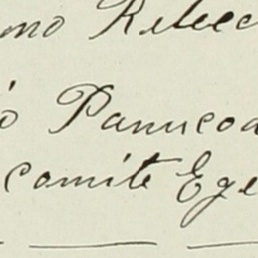 mo Rebecc
o Panucoa
comite Ege